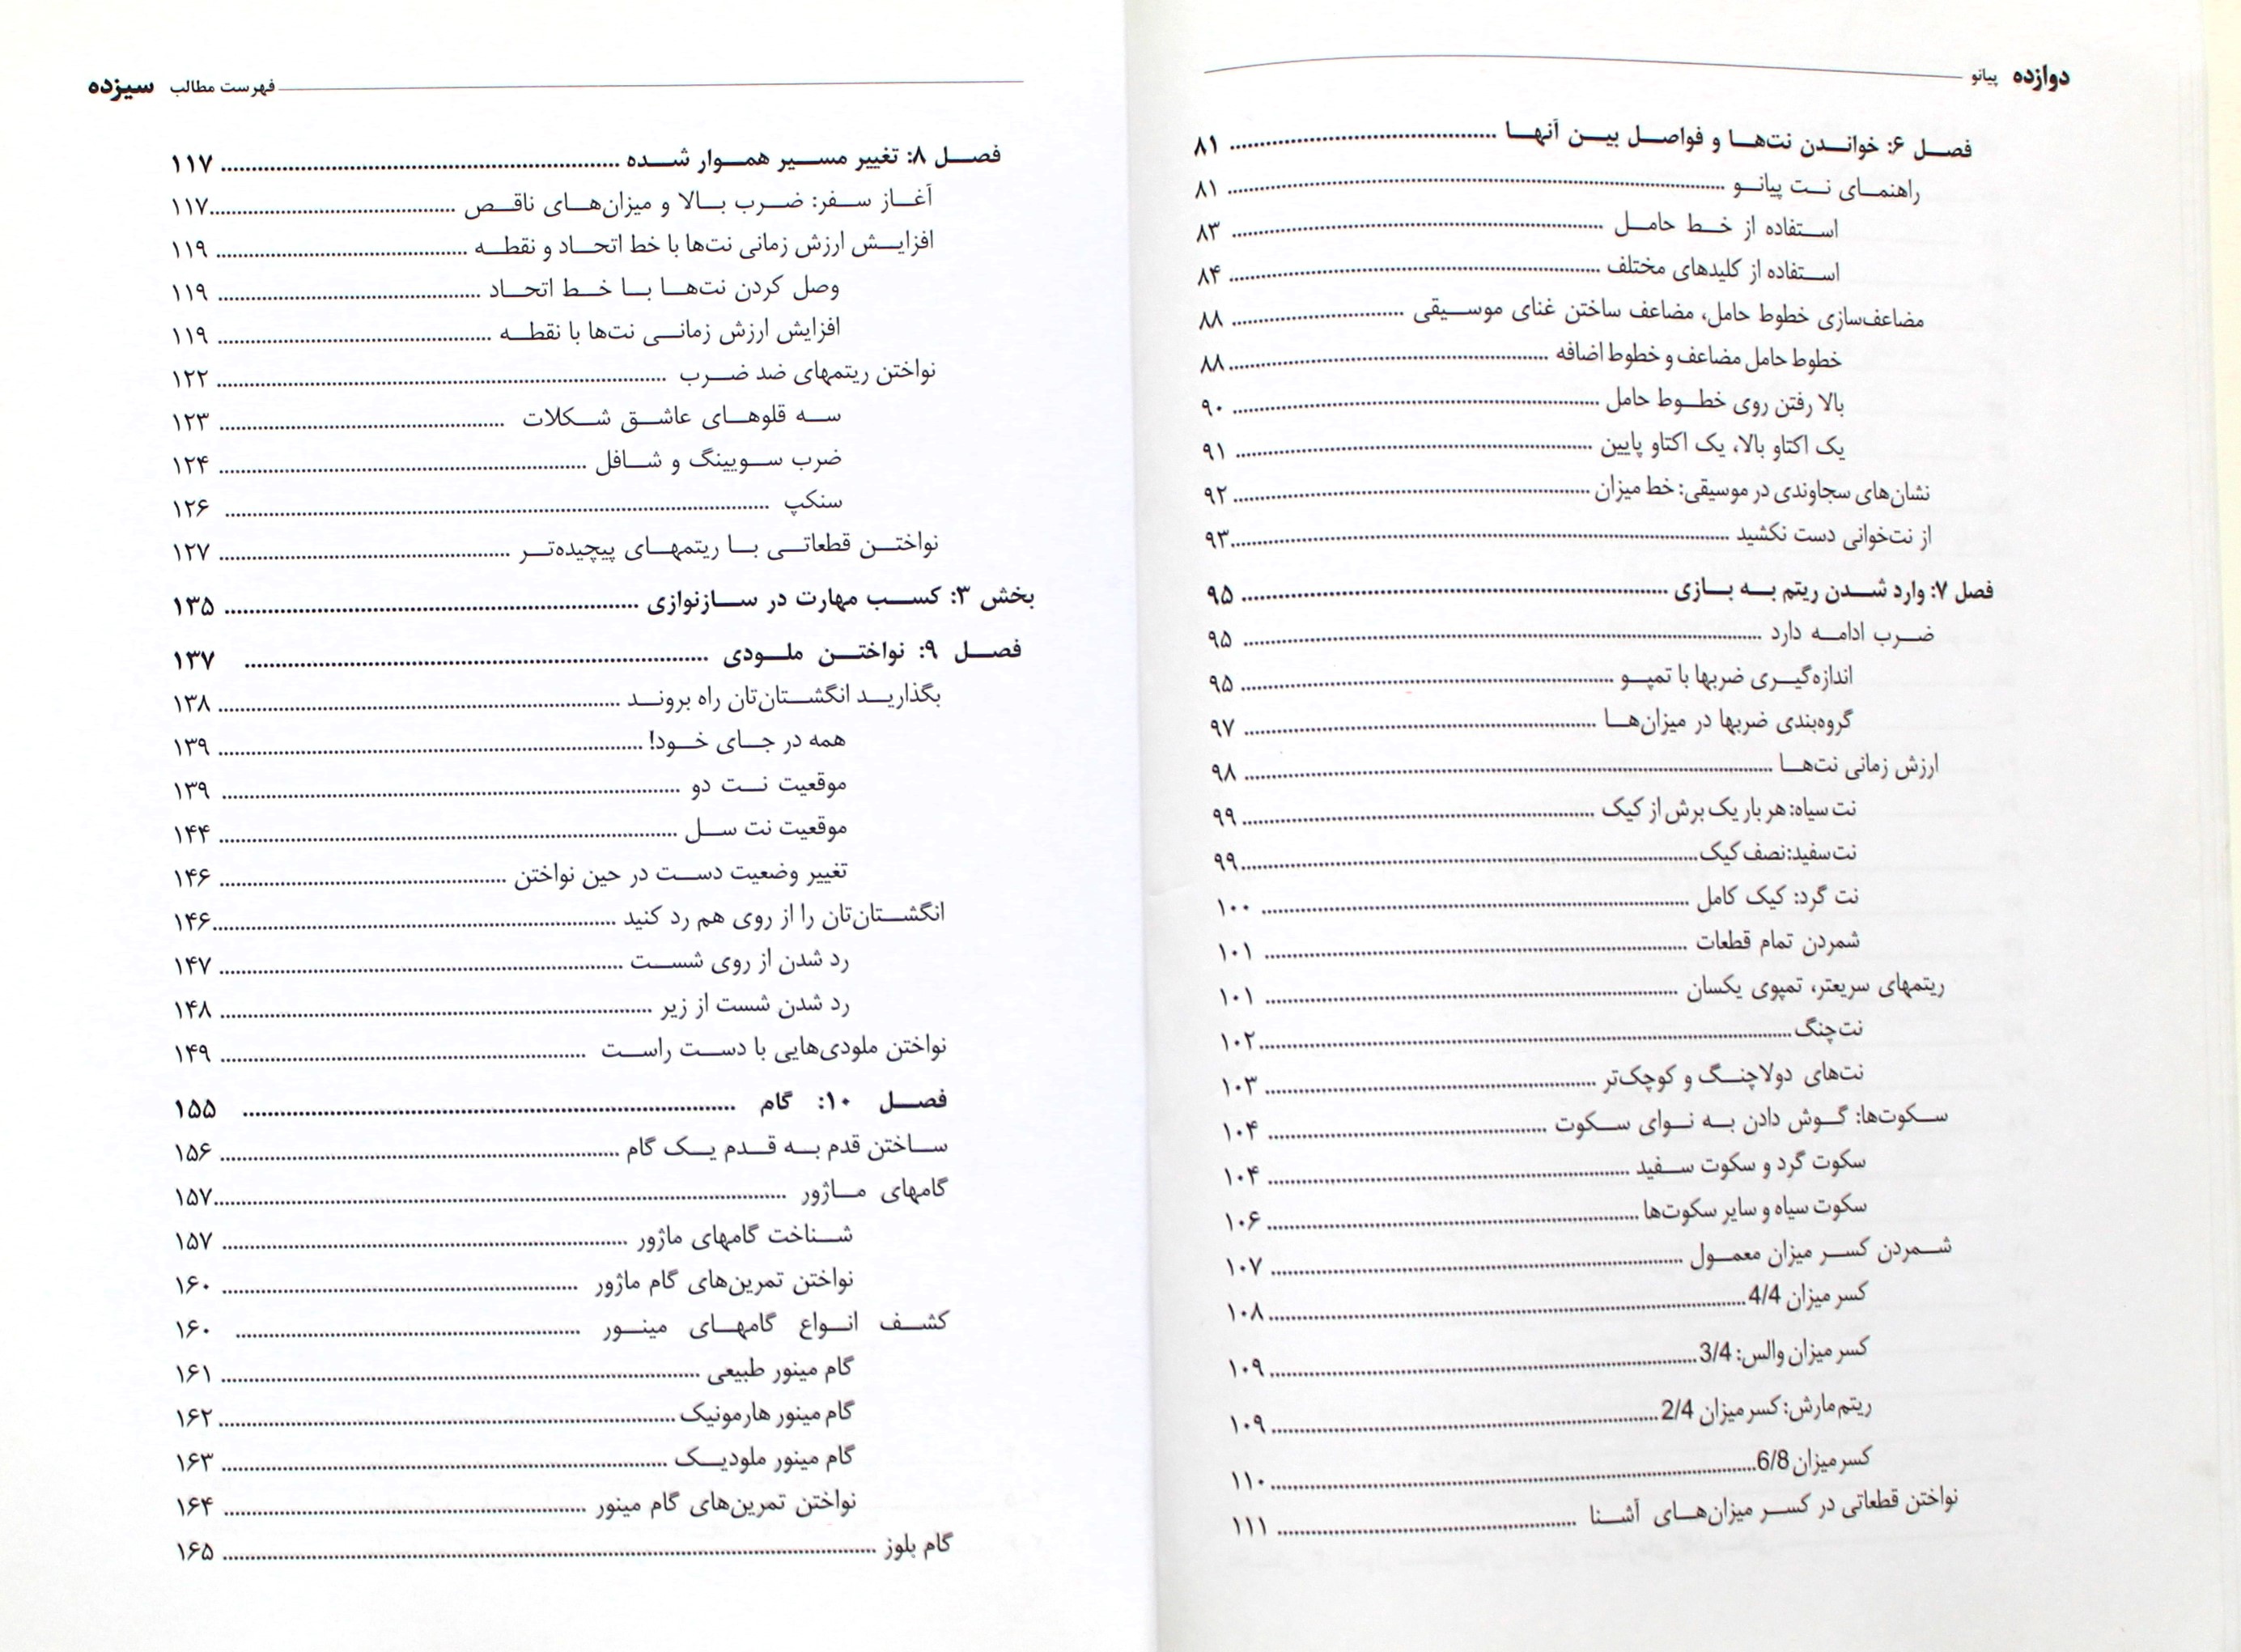 دوازده پیانو
فصل ۶: خواندن نت‌ها و فواصل بین آنها ........ ۸۱
راهنمای نت پیانو ........ ۸۱
استفاده از خط حامل ........ ۸۳
استفاده از کلیدهای مختلف ........ ۸۴
مضاعف‌سازی خطوط حامل، مضاعف ساختن غنای موسیقی ........ ۸۸
خطوط حامل مضاعف و خطوط اضافه ........ ۸۸
بالا رفتن روی خطوط حامل ........ ۹۰
یک اکتاو بالا، یک اکتاو پایین ........ ۹۱
نشان‌های سجاوندی در موسیقی: خط میزان ........ ۹۲
از نت‌خوانی دست نکشید ........ ۹۳
فصل ۷: وارد شدن ریتم به بازی ........ ۹۵
ضرب ادامه دارد ........ ۹۵
اندازه‌گیری ضربها با تمپو ........ ۹۵
گروه‌بندی ضربها در میزان‌ها ........ ۹۷
ارزش زمانی نت‌ها ........ ۹۸
نت سیاه: هر بار یک برش از کیک ........ ۹۹
نت سفید: نصف کیک ........ ۹۹
نت گرد: کیک کامل ........ ۱۰۰
شمردن تمام قطعات ........ ۱۰۱
ریتمهای سریعتر، تمپوی یکسان ........ ۱۰۱
نت چنگ ........ ۱۰۲
نت‌های دولاچنگ و کوچک‌تر ........ ۱۰۳
سکوت‌ها: گوش دادن به نوای سکوت ........ ۱۰۴
سکوت گرد و سکوت سفید ........ ۱۰۴
سکوت سیاه و سایر سکوت‌ها ........ ۱۰۶
شمردن کسر میزان معمول ........ ۱۰۷
کسر میزان 4/4 ........ ۱۰۸
کسر میزان والس: 3/4 ........ ۱۰۹
ریتم مارش: کسر میزان 2/4 ........ ۱۰۹
کسر میزان 6/8 ........ ۱۱۰
نواختن قطعاتی در کسر میزان‌های آشنا ........ ۱۱۱
فهرست مطالب سیزده
فصل ۸: تغییر مسیر هموار شده ........ ۱۱۷
آغاز سفر: ضرب بالا و میزان‌های ناقص ........ ۱۱۷
افزایش ارزش زمانی نت‌ها با خط اتحاد و نقطه ........ ۱۱۹
وصل کردن نت‌ها با خط اتحاد ........ ۱۱۹
افزایش ارزش زمانی نت‌ها با نقطه ........ ۱۱۹
نواختن ریتمهای ضد ضرب ........ ۱۲۲
سه قلوهای عاشق شکلات ........ ۱۲۳
ضرب سویینگ و شافل ........ ۱۲۴
سنکپ ........ ۱۲۶
نواختن قطعاتی با ریتمهای پیچیده‌تر ........ ۱۲۷
بخش ۳: کسب مهارت در سازنوازی ........ ۱۳۵
فصل ۹: نواختن ملودی ........ ۱۳۷
بگذارید انگشتان‌تان راه بروند ........ ۱۳۸
همه در جای خود! ........ ۱۳۹
موقعیت نت دو ........ ۱۳۹
موقعیت نت سل ........ ۱۴۴
تغییر وضعیت دست در حین نواختن ........ ۱۴۶
انگشتان‌تان را از روی هم رد کنید ........ ۱۴۶
رد شدن از روی شست ........ ۱۴۷
رد شدن شست از زیر ........ ۱۴۸
نواختن ملودی‌هایی با دست راست ........ ۱۴۹
فصل ۱۰: گام ........ ۱۵۵
ساختن قدم به قدم یک گام ........ ۱۵۶
گامهای ماژور ........ ۱۵۷
شناخت گامهای ماژور ........ ۱۵۷
نواختن تمرین‌های گام ماژور ........ ۱۶۰
کشف انواع گامهای مینور ........ ۱۶۰
گام مینور طبیعی ........ ۱۶۱
گام مینور هارمونیک ........ ۱۶۲
گام مینور ملودیک ........ ۱۶۳
نواختن تمرین‌های گام مینور ........ ۱۶۴
گام بلوز ........ ۱۶۵